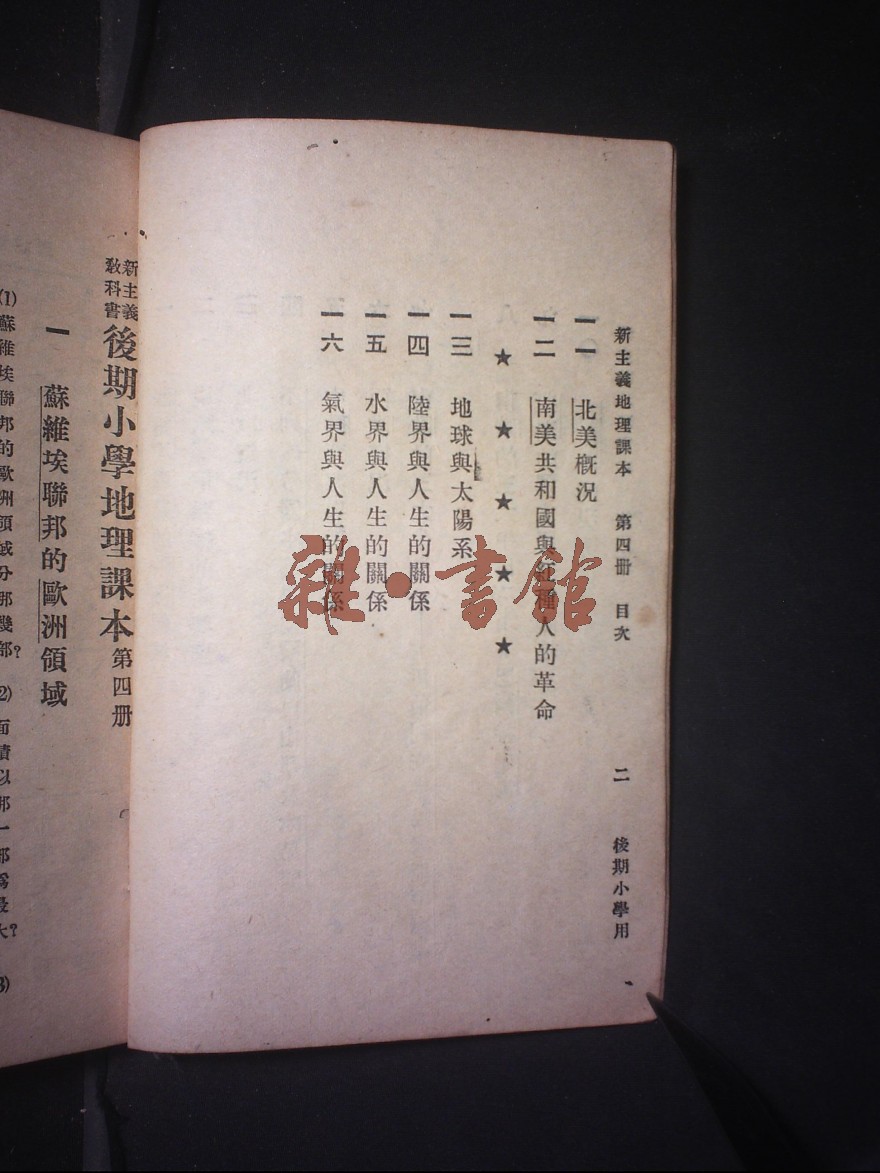 新主義地理課本　第四册　目次　二　後期小學用
一一　北美概況
一二　南美共和國與紅種人的革命
★　★　★　★　★
一三　地球與太陽系
一四　陸界與人生的關係
一五　水界與人生的關係
一六　氣界與人生的關係
雜·書館
新主義
教科書
後期小學地理課本第四册
一　蘇維埃聯邦的歐洲領域
(1)蘇維埃聯邦的歐洲領域分那幾部?　(2)面積以那一部爲最大?　(3)